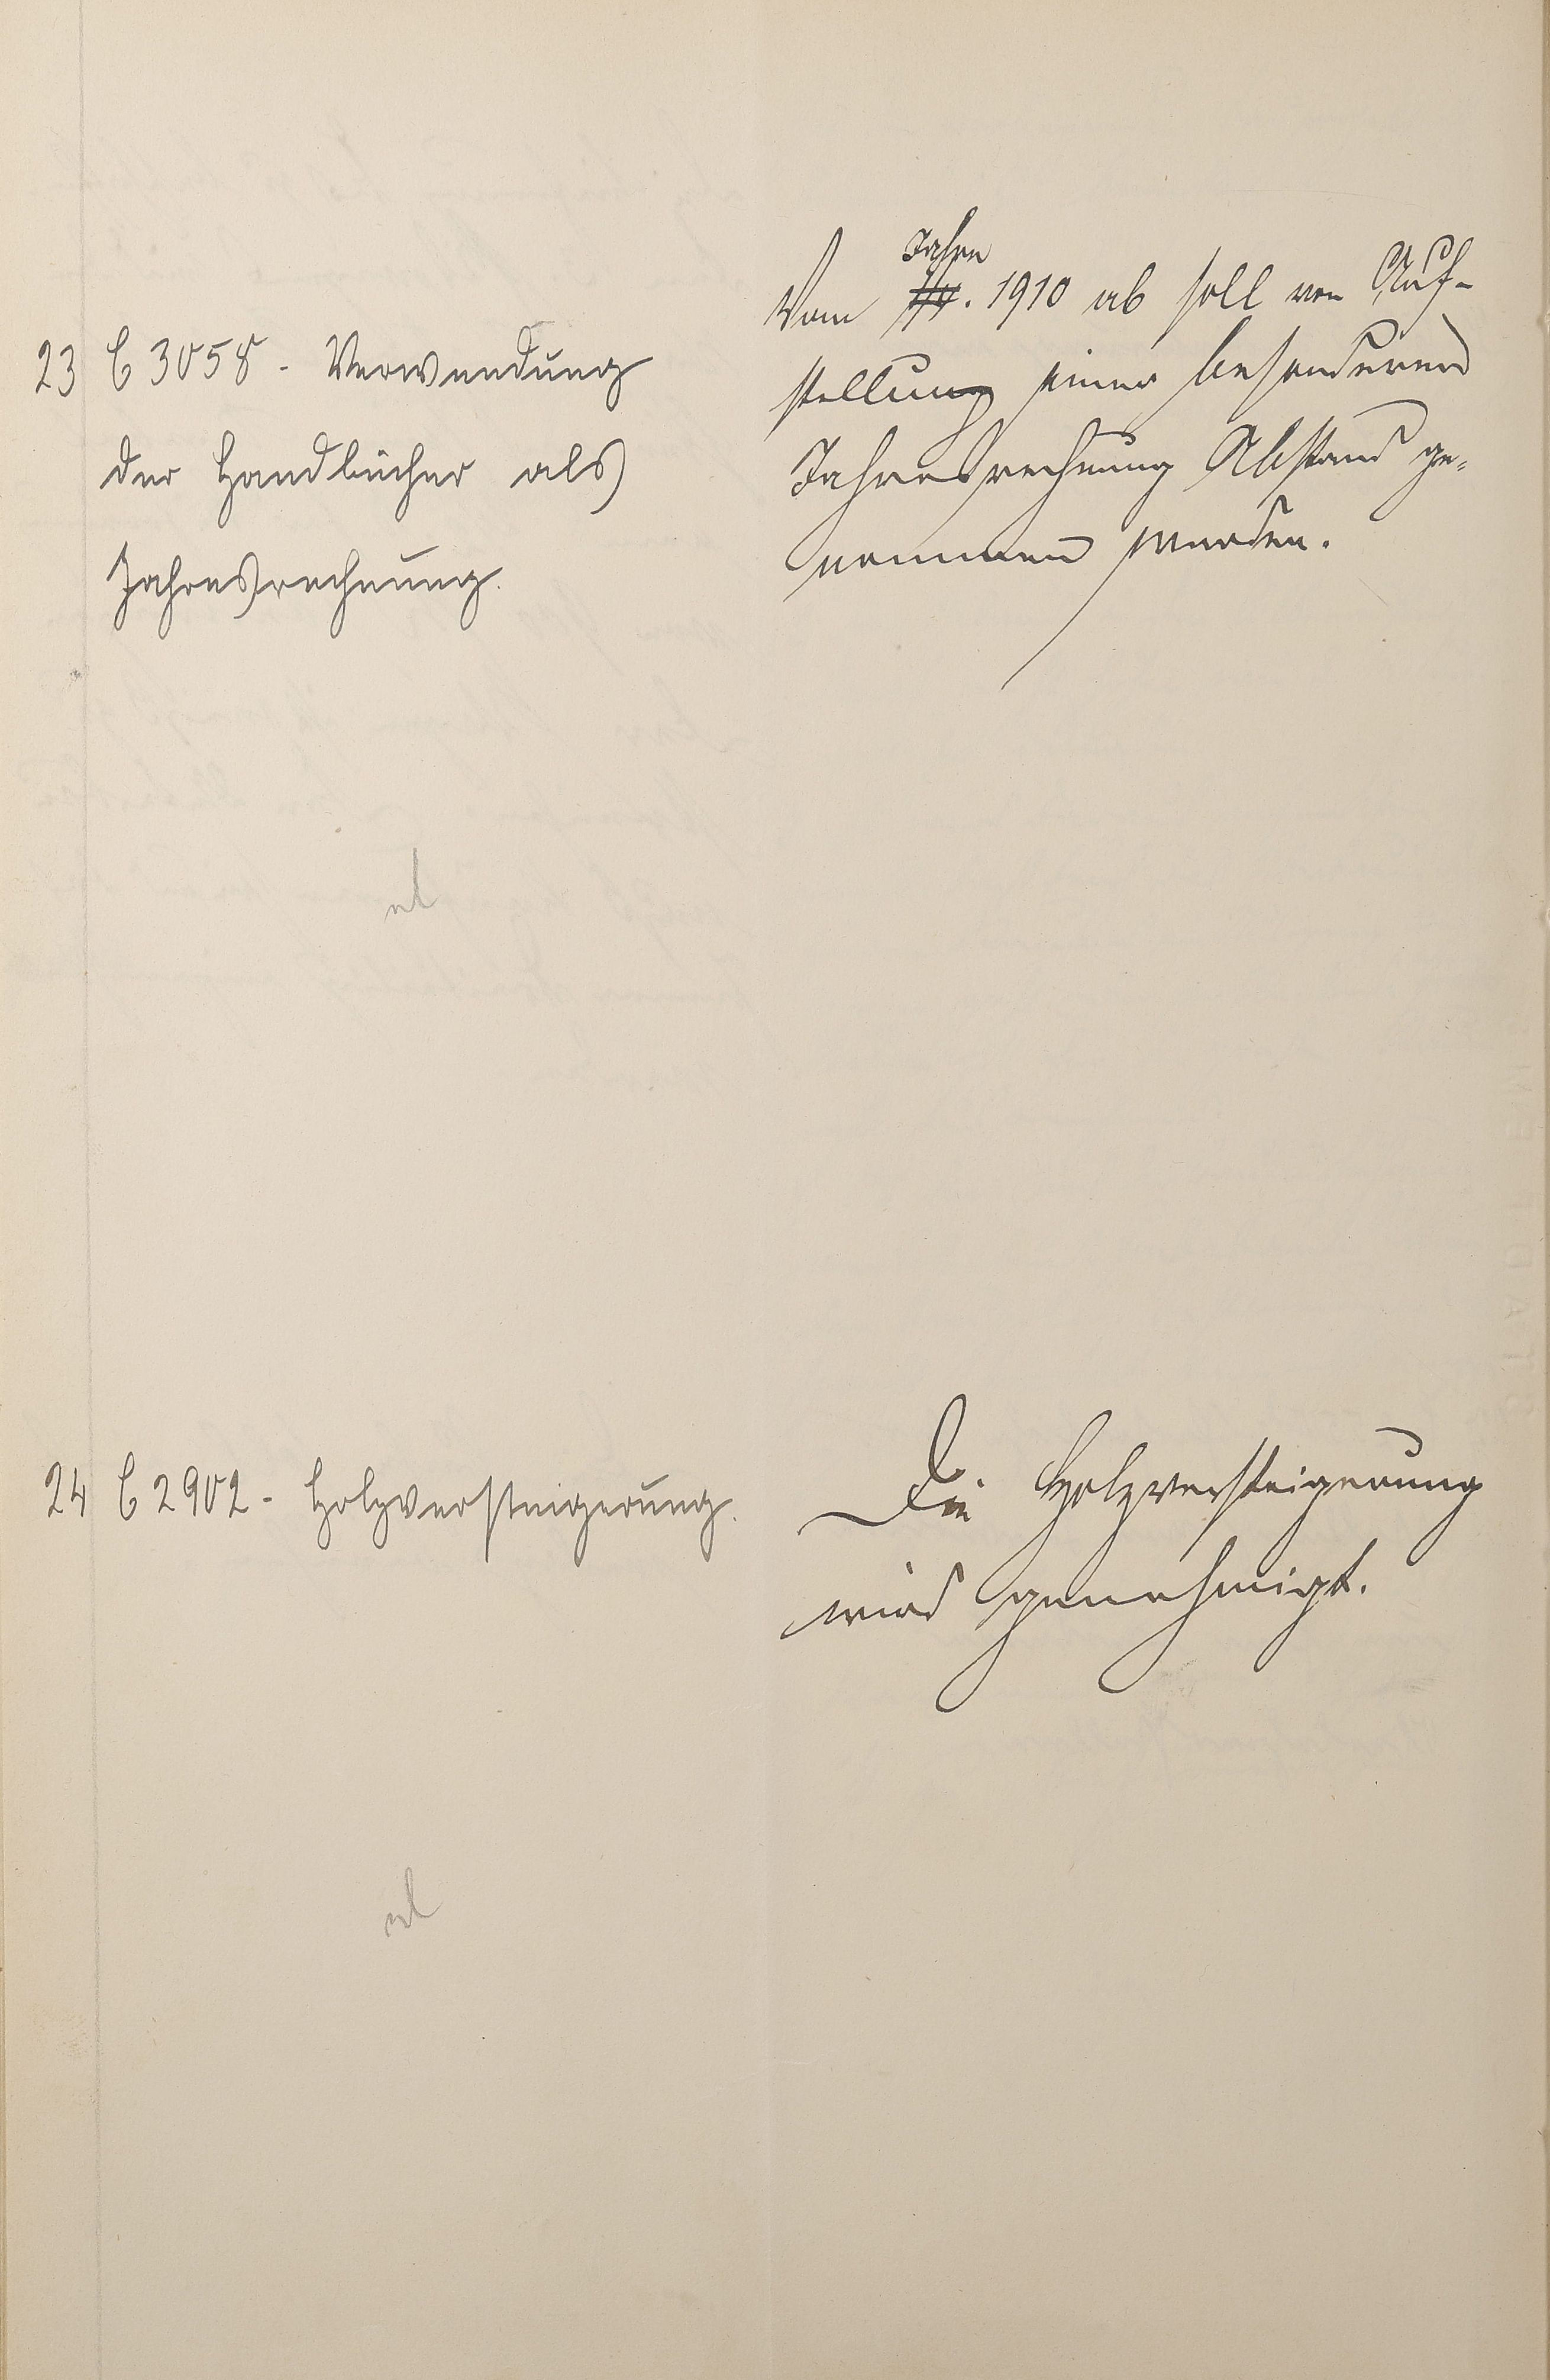 23 C 3058 - Verwendung
der Handbücher als
Jahresrechnung.
Jahre
Vom 1910 ab soll von Auf-
stellung einer besonderen
Jahresrechnung Abstand ge-
nommen werden.
24 C 2902 - Holzversteigerung.
Die Holzversteigerung
wird genehmigt.